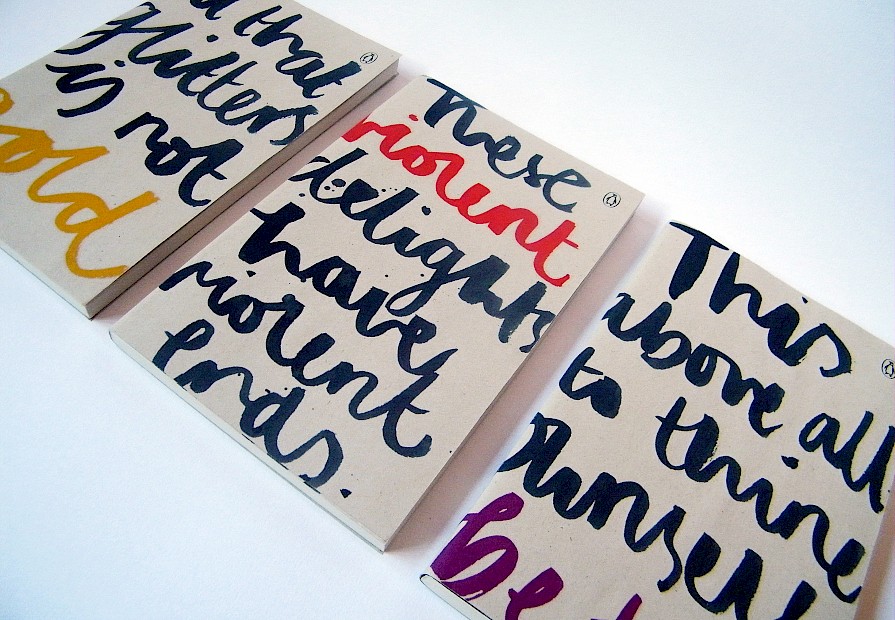 that
glitters
is not
gold
These
violent
delights
have
violent
ends.
This
above all
to thine
ownself
be